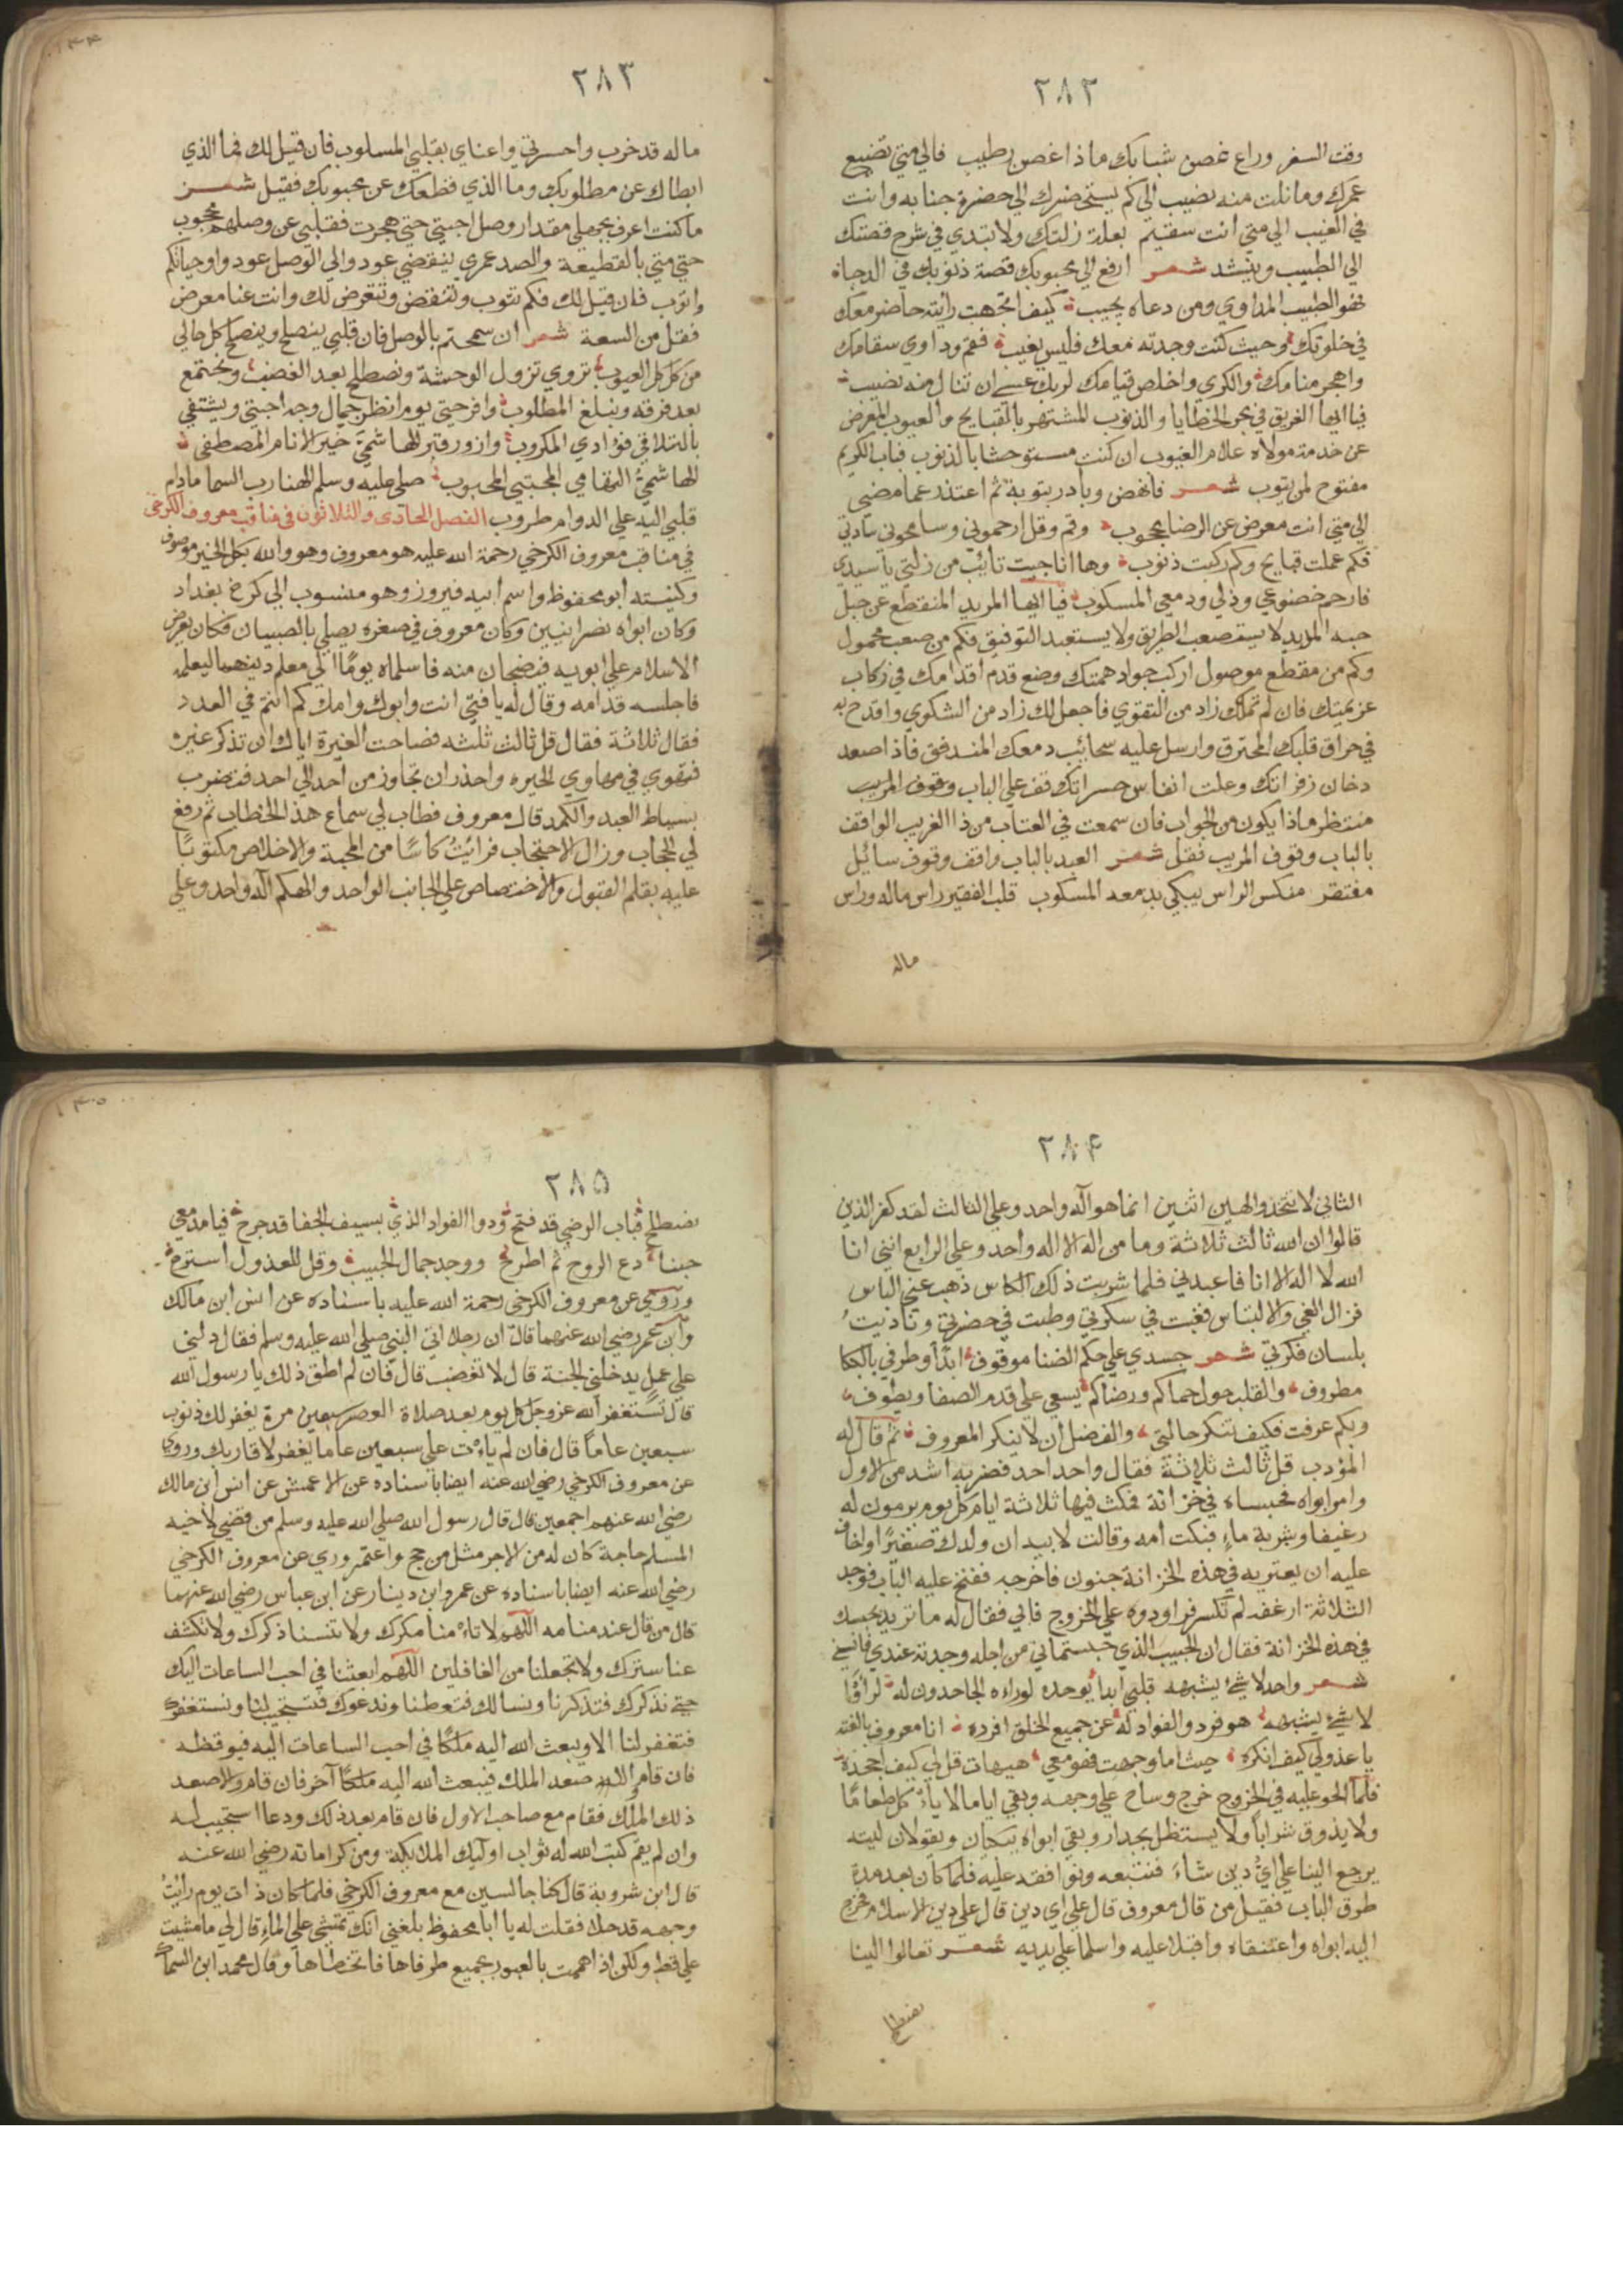 ٢٨٢
وقت السفر وراع غصن شبابك ماذا غصن رطيب فالي متي تضيع
عمرك وما نلت منه نصيب الي كم يستحضرك الي حضرة جنابه وانت
في الغيب الي متي انت سقيم بعلة زلتك ولا تبتدي في شرح قصتك
الي الطبيب وينشد شعر ارفع الي محبوبك قصة ذنوبك في الدجاة
فهو الطبيب المداوي ومن دعاه يجيب كيف اتجهت رايته حاضر معك
في خلوتك وحيث كنت وجدته معك فليس يغيب فقم وداوي سقامك
واهجر منامك والكري واخلص قيامك لربك عسى ان تنال منه نصيب
فيا ايها الغريق في بحر الخطايا والذنوب المشتهر بالقبايح والعيوب المعرض
عن خدمة مولاه علام الغيوب ان كنت مستوحشا بالذنوب فباب الكريم
مفتوح لمن يتوب شعر فانهض وبادر بتوبة ثم اعتذر عما مضي
الي متي انت معرض عن الرضا محجوب وقم وقل ارحموني وسامحوني سادتي
فكم عملت قبايح وكم ركبت ذنوب وها انا جيت تائب من زلتي يا سيدي
فارحم خضوعي وذلي ودمعي المسكوب فيا ايها المريد المنقطع عن حبل
حبه المريد لا يستصعب الطريق ولا يستبعد التوفيق فكم من صعب محمول
وكم من مقطع موصول اركب جواد همتك وضع قدم اقدامك في ركاب
عزيمتك فان لم تملك زاد من التقوي فاجعل لك زاد من الشكوي واقدح به
في حراق قلبك المحترق وارسل عليه سحائب دمعك المندفق فاذا صعد
دخان زفراتك وعلت انفاس حسراتك قف علي الباب وقوف المريب
منتظر ماذا يكون من الجواب فان سمعت في العتاب من ذا الغريب الواقف
بالباب وقوف المريب فقل شعر العبد بالباب واقف وقوف سائل
مفتقر منكس الراس يبكي بدمعه المسكوب قلب الفقير راس ماله وراس
ماله
٢٨٣
ماله قد خرب واحسرتي واعناي بقلبي المسلوب فان قيل لك فما الذي
ابطاك عن مطلوبك وما الذي قطعك عن محبوبك فقيل شعر
ما كنت اعرف بجهلي مقدار وصل احبتي حتي هجرت فقلبي عن وصلهم محجوب
حتي متي بالقطيعة والصد عمري ينقضي عود والي الوصل عود واوحياتكم
واتوب فان قيل لك فكم تتوب وتنقض وتتعرض لك وانت عنا معرض
فقل من السعة شعر ان سمحتم بالوصل فان قلبي ينصلح ويصلح كل حالي
من كل كل العيوب تروي تزول الوحشة ونصطلح بعد الغضب ونجتمع
بعد فرقه ونبلغ المطلوب وافرحتي يوم انظر جمال وجه احبتي ويشتفي
بالتلاقي فؤادي المكروب وازور قبر الهاشمي خير الانام المصطفي
الهاشمي التهامي المجتبي المحبوب صلي عليه وسلم الهنا رب السما مادام
قلبي اليه علي الدوام طروب الفصل الحادي والثلاثون في مناقب معروف الكرخي
في مناقب معروف الكرخي رحمة الله عليه هو معروف وهو والله بكل الخير موصوف
وكنيته ابو محفوظ واسم ابيه فيروز وهو منسوب الي كرخ بغداد
وكان ابواه نصرانيين وكان معروف في صغره يصلي بالصبيان فكان يعرض
الاسلام علي ابويه فيضجان منه فاسلماه يوما الي معلم دينهما ليعلمه
فاجلسه قدامه وقال له يا فتي انت وابوك وامك كم انتم في العدد
فقال ثلاثة فقال قل ثالث ثلثه فصاحت الغيرة اياك وان تذكر غيره
فتهوي في مهاوي الحيره واحذر ان تجاوز من احد الي احد فتضرب
بسياط البعد والكمد قال معروف فطاب لي سماع هذا الخطاب ثم رفع
لي الحجاب وزال الاحتجاب فرايت كاسا من المحبة والاخلاص مكتوبا
عليه بقلم القبول والاختصاص علي الجانب الواحد والهكم اله واحد وعلي
٢٨٤
الثاني لا تتخذوا الهين اثنين انما هو اله واحد وعلي الثالث لقد كفر الذين
قالوا ان الله ثالث ثلاثة وما من اله الا اله واحد وعلي الرابع انني انا
الله لا اله الا انا فاعبدني فلما شربت ذلك الكاس ذهب عني الباس
فزال الغي والالتباس فغبت في سكرتي وطبت في حضرتي وناديت
بلسان فكرتي شعر جسدي علي حكم الضنا موقوف ابدا وطرفي بالبكا
مطروف والقلب حول حماكم ورضاكم يسعي علي قدم الصفا ويطوف
وبكم عرفت فكيف تنكر حالتي والفضل ان لا ينكر المعروف ثم قال له
المؤدب قل ثالث ثلاثة فقال واحد احد فضربه اشد من الاول
وامر ابواه فحبساه في خزانة فمكث فيها ثلاثة ايام كل يوم يرمون له
رغيفا وشربة ماء فبكت امه وقالت لابيه ان ولدك صغيرا واخاف
عليه ان يعتريه في هذه الخزانة جنون فاخرجه ففتح عليه الباب فوجد
الثلاثة ارغفه لم تكسر فراودوه علي الخروج فابي فقال له ما تريد بحبسك
في هذه الخزانة فقال ان الحبيب الذي حبستماني من اجله وجدته عندي فانسني
شعر واحد لا شئ يشبهه قلبي ابدا يوحده لوراه الجاحدون له لراؤا
لا شئ يشبهه هو فرد والفواد له عن جميع الخلق افرده انا معروف بالفته
يا عذولي كيف انكره حيث اما وجهت فهو معي هيهات قل لي كيف اجحده
فلما الحو عليه في الخروج خرج وساح علي وجهه وبقي اياما لا ياكل طعاما
ولا يذوق شرابا ولا يستظل بجدار وبقي ابواه يبكيان ويقولان ليته
يرجع الينا علي اي دين شاء فنتبعه ونوافقه عليه فلما كان بعد مدة
طرق الباب فقيل من قال معروف قال علي اي دين قال علي دين الاسلام فخرج
اليه ابواه واعتنقاه واقبلا عليه واسلما علي يديه شعر تعالوا الينا
نصطلح
٢٨٥
نصطلح فباب الرضي قد فتح ودوا الفواد الذي بسيف الجفا قد جرح فيا مدعي
حبنا دع الروح ثم اطرح ووجد جمال الحبيب وقل للعذول استرح
وروي عن معروف الكرخي رحمة الله عليه باسناده عن انس ابن مالك
وابن عمر رضي الله عنهما قال ان رجلا اتي النبي صلي الله عليه وسلم فقال دلني
علي عمل يدخلني الجنة قال لا تغضب قال فان لم اطق ذلك يا رسول الله
قال تستغفر الله عز وجل كل يوم بعد صلاة العصر سبعين مرة يغفر لك ذنوب
سبعين عاما قال فان لم يات علي سبعين عاما يغفر لاقاربك وروي
عن معروف الكرخي رضي الله عنه ايضا باسناده عن الاعمش عن انس ابن مالك
رضي الله عنهم اجمعين قال قال رسول الله صلي الله عليه وسلم من قضي لاخيه
المسلم حاجة كان له من الاجر مثل من حج واعتمر وروي عن معروف الكرخي
رضي الله عنه ايضا باسناده عن عمرو ابن دينار عن ابن عباس رضي الله عنهما
قال من قال عند منامه اللهم لا تامنا مكرك ولا تنسنا ذكرك ولا تكشف
عنا سترك ولا تجعلنا من الغافلين اللهم ابعثنا في احب الساعات اليك
حتي نذكرك فتذكرنا ونسالك فتعطينا وندعوك فتستجيب لنا ونستغفرك
فتغفر لنا الا ويبعث الله اليه ملكا في احب الساعات اليه فيوقظه
فان قام والا صعد الملك فيبعث الله اليه ملكا آخر فان قام والا صعد
ذلك الملك فقام مع صاحب الاول فان قام بعد ذلك ودعا استجيب له
وان لم يقم كتب الله له ثواب اوليك الملايكة ومن كراماته رضي الله عنه
قال ابن شروية قال كنا جالسين مع معروف الكرخي فلما كان ذات يوم رايت
وجهه قد حلا فقلت له يا ابا محفوظ بلغني انك تمشي علي الماء قال لي ما مشيت
علي قط ولكن اذا هممت بالعبور يجمع طرفاها فاتخطاها وقال محمد ابن السماك